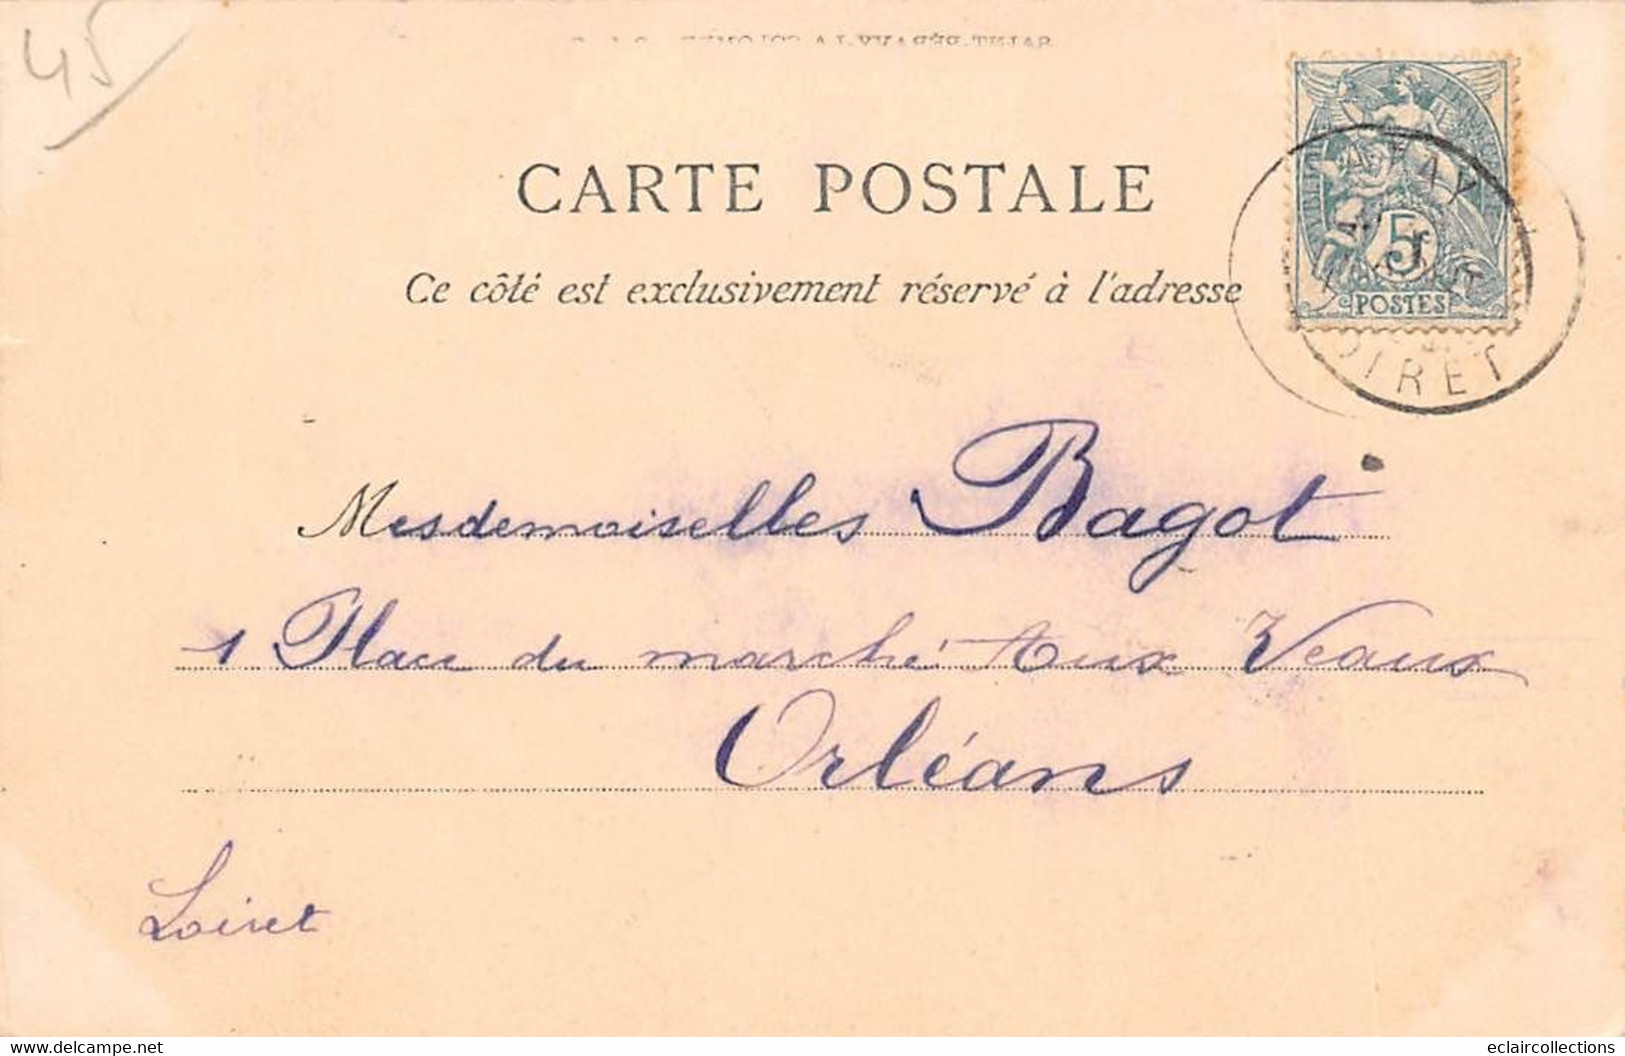 45
CARTE POSTALE
Ce côté est exclusivement réservé à l'adresse
5
POSTES
LOIRET
Mesdemoiselles Bagot
1 Place du marché Aux Veaux
Orléans
Loiret
www.delcampe.net
eclaircollections